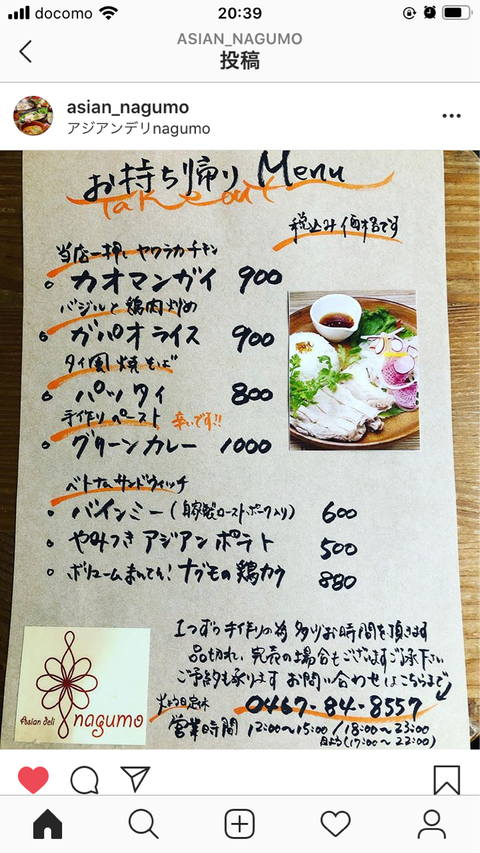 docomo 20:39
ASIAN_NAGUMO
投稿
asian_nagumo
アジアンデリnagumo
お持ち帰り Menu
Take out
税込み価格です
当店一押しヤワラカチキン
カオマンガイ 900
バジルと鶏肉炒め
ガパオライス 900
タイ風焼そば
パッタイ 800
手作りペースト 辛いです!!
グリーンカレー 1000
ベトナムサンドウィッチ
バインミー(自家製ローストポーク入り) 600
やみつきアジアンポテト 500
ボリュームまんてん!ナグモの鶏カツ 880
1つずつ手作りの為多少お時間を頂きます
品切れ、完売の場合もございますご了承下さい
ご予約も承ります お問い合わせはこちらまで
火よう日定休 0467-84-8557
営業時間 12:00~15:00 / 18:00~23:00
日よう(17:00~22:00)
Asian deli
nagumo